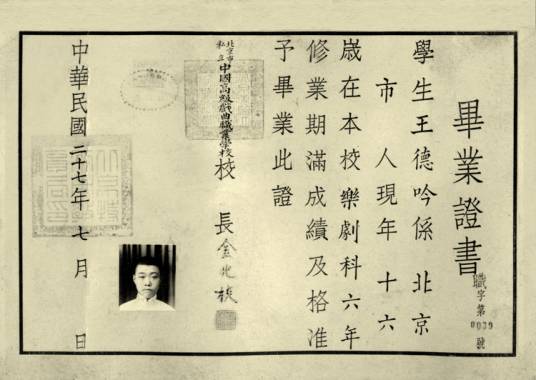 畢業證書
職字第0039號
學生王德吟係北京
市人現年十六
歲在本校樂劇科六年
修業期滿成績及格准
予畢業此證
北京市私立中國高級戲曲職業學校校長金兆棪
中華民國二十七年七月日